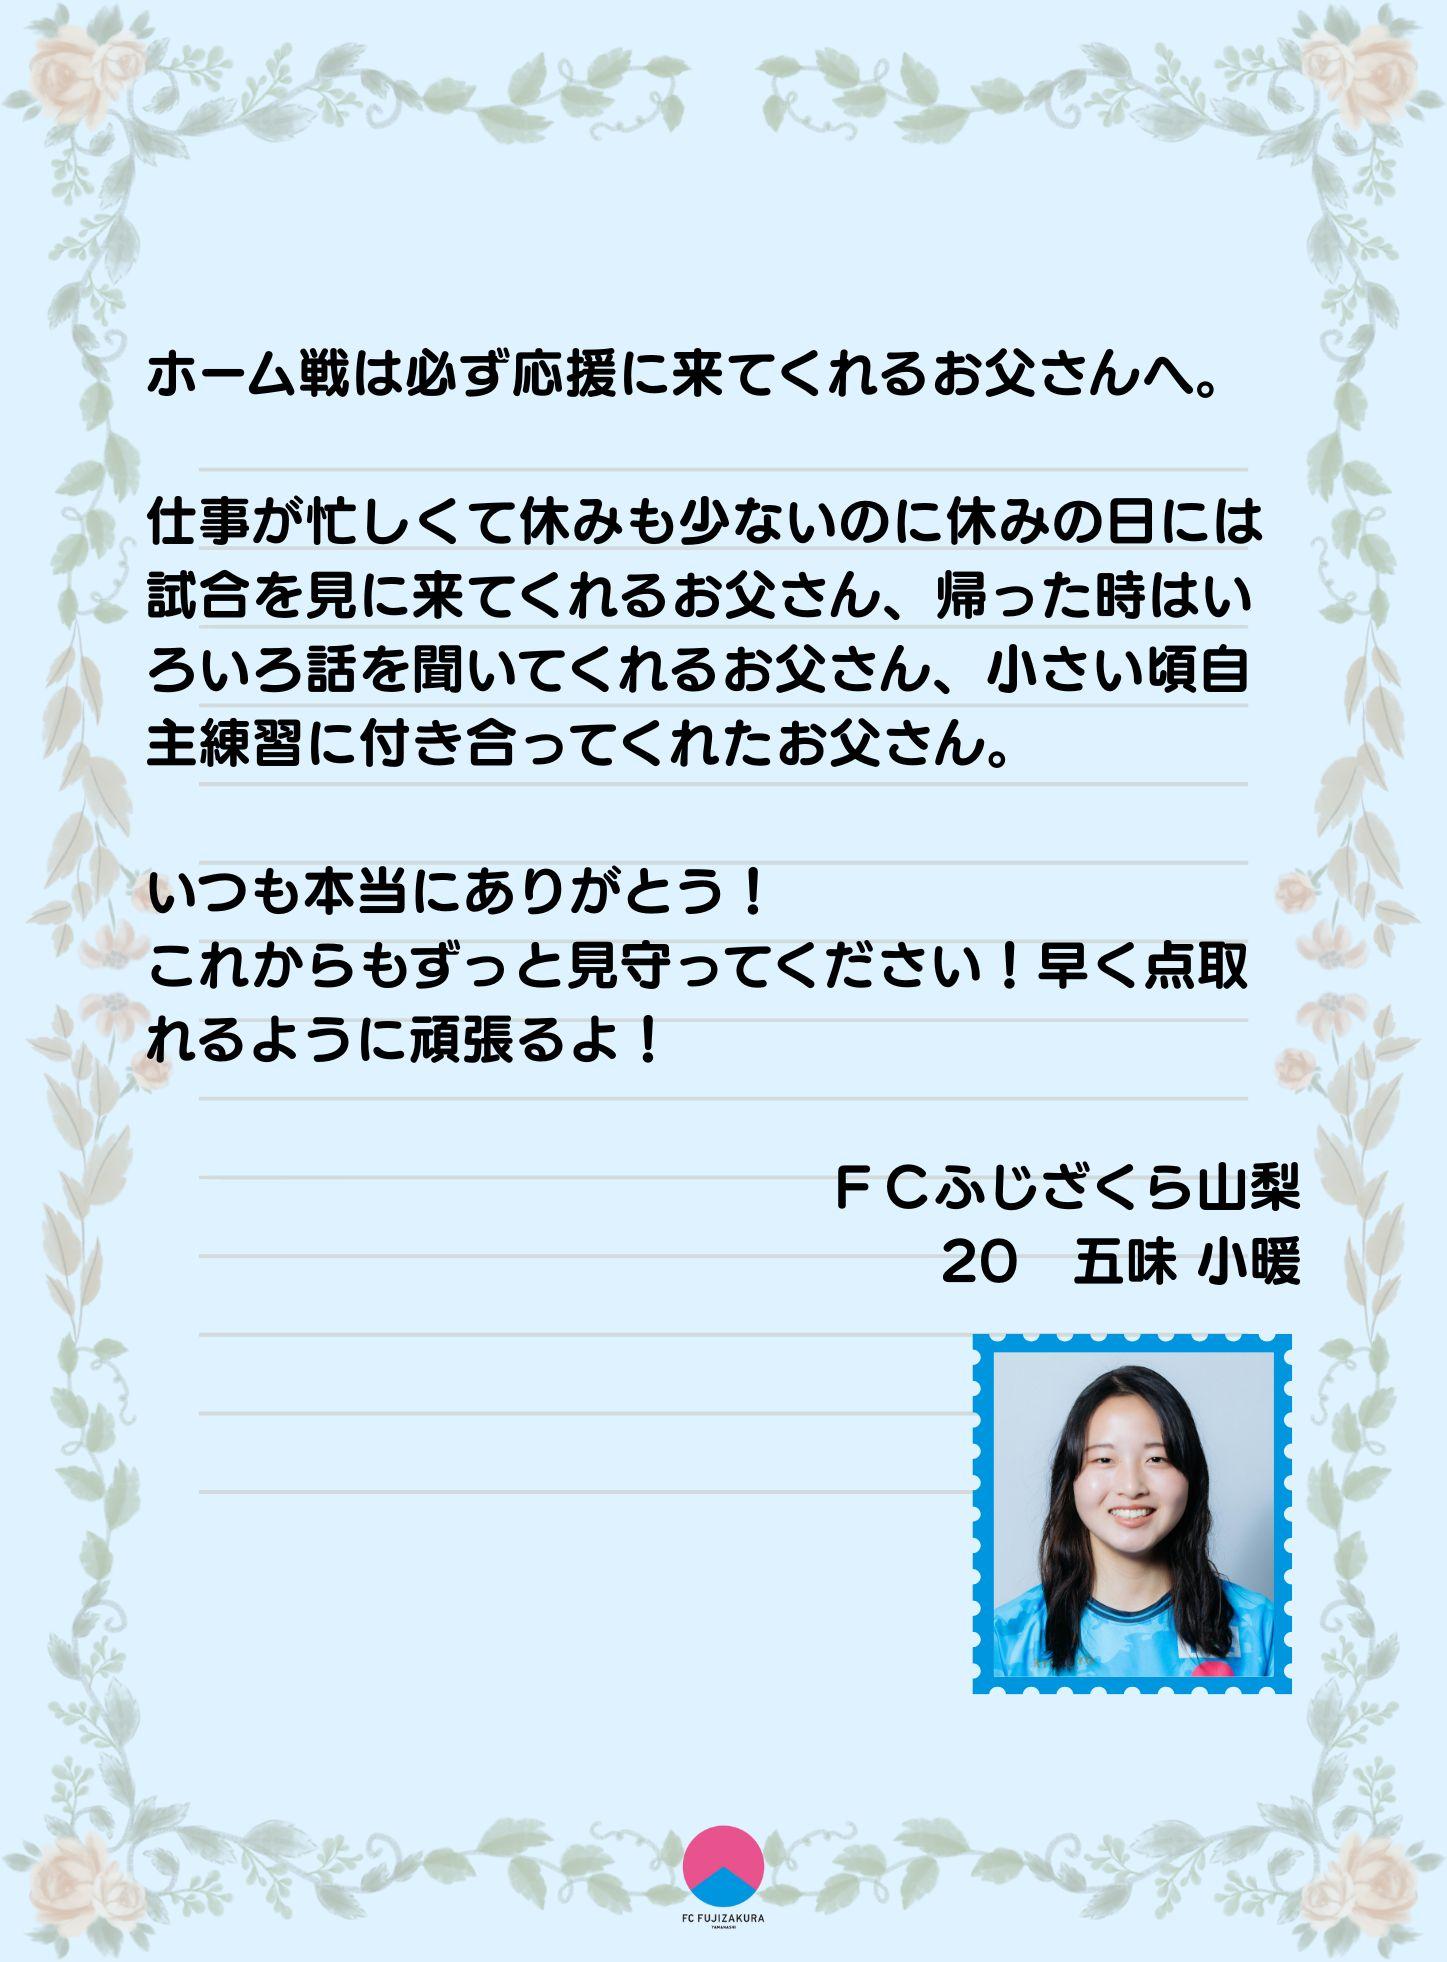 ホーム戦は必ず応援に来てくれるお父さんへ。
仕事が忙しくて休みも少ないのに休みの日には
試合を見に来てくれるお父さん、帰った時はい
ろいろ話を聞いてくれるお父さん、小さい頃自
主練習に付き合ってくれたお父さん。
いつも本当にありがとう！
これからもずっと見守ってください！早く点取
れるように頑張るよ！
ＦＣふじざくら山梨
20　五味 小暖
FC FUJIZAKURA
YAMANASHI